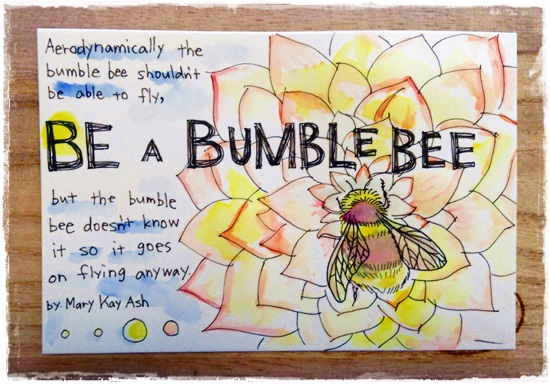 Aerodynamically the
bumble bee shouldn't
be able to fly,
BE A BUMBLE BEE
but the bumble
bee doesn't know
it so it goes
on flying anyway.
by. Mary Kay Ash